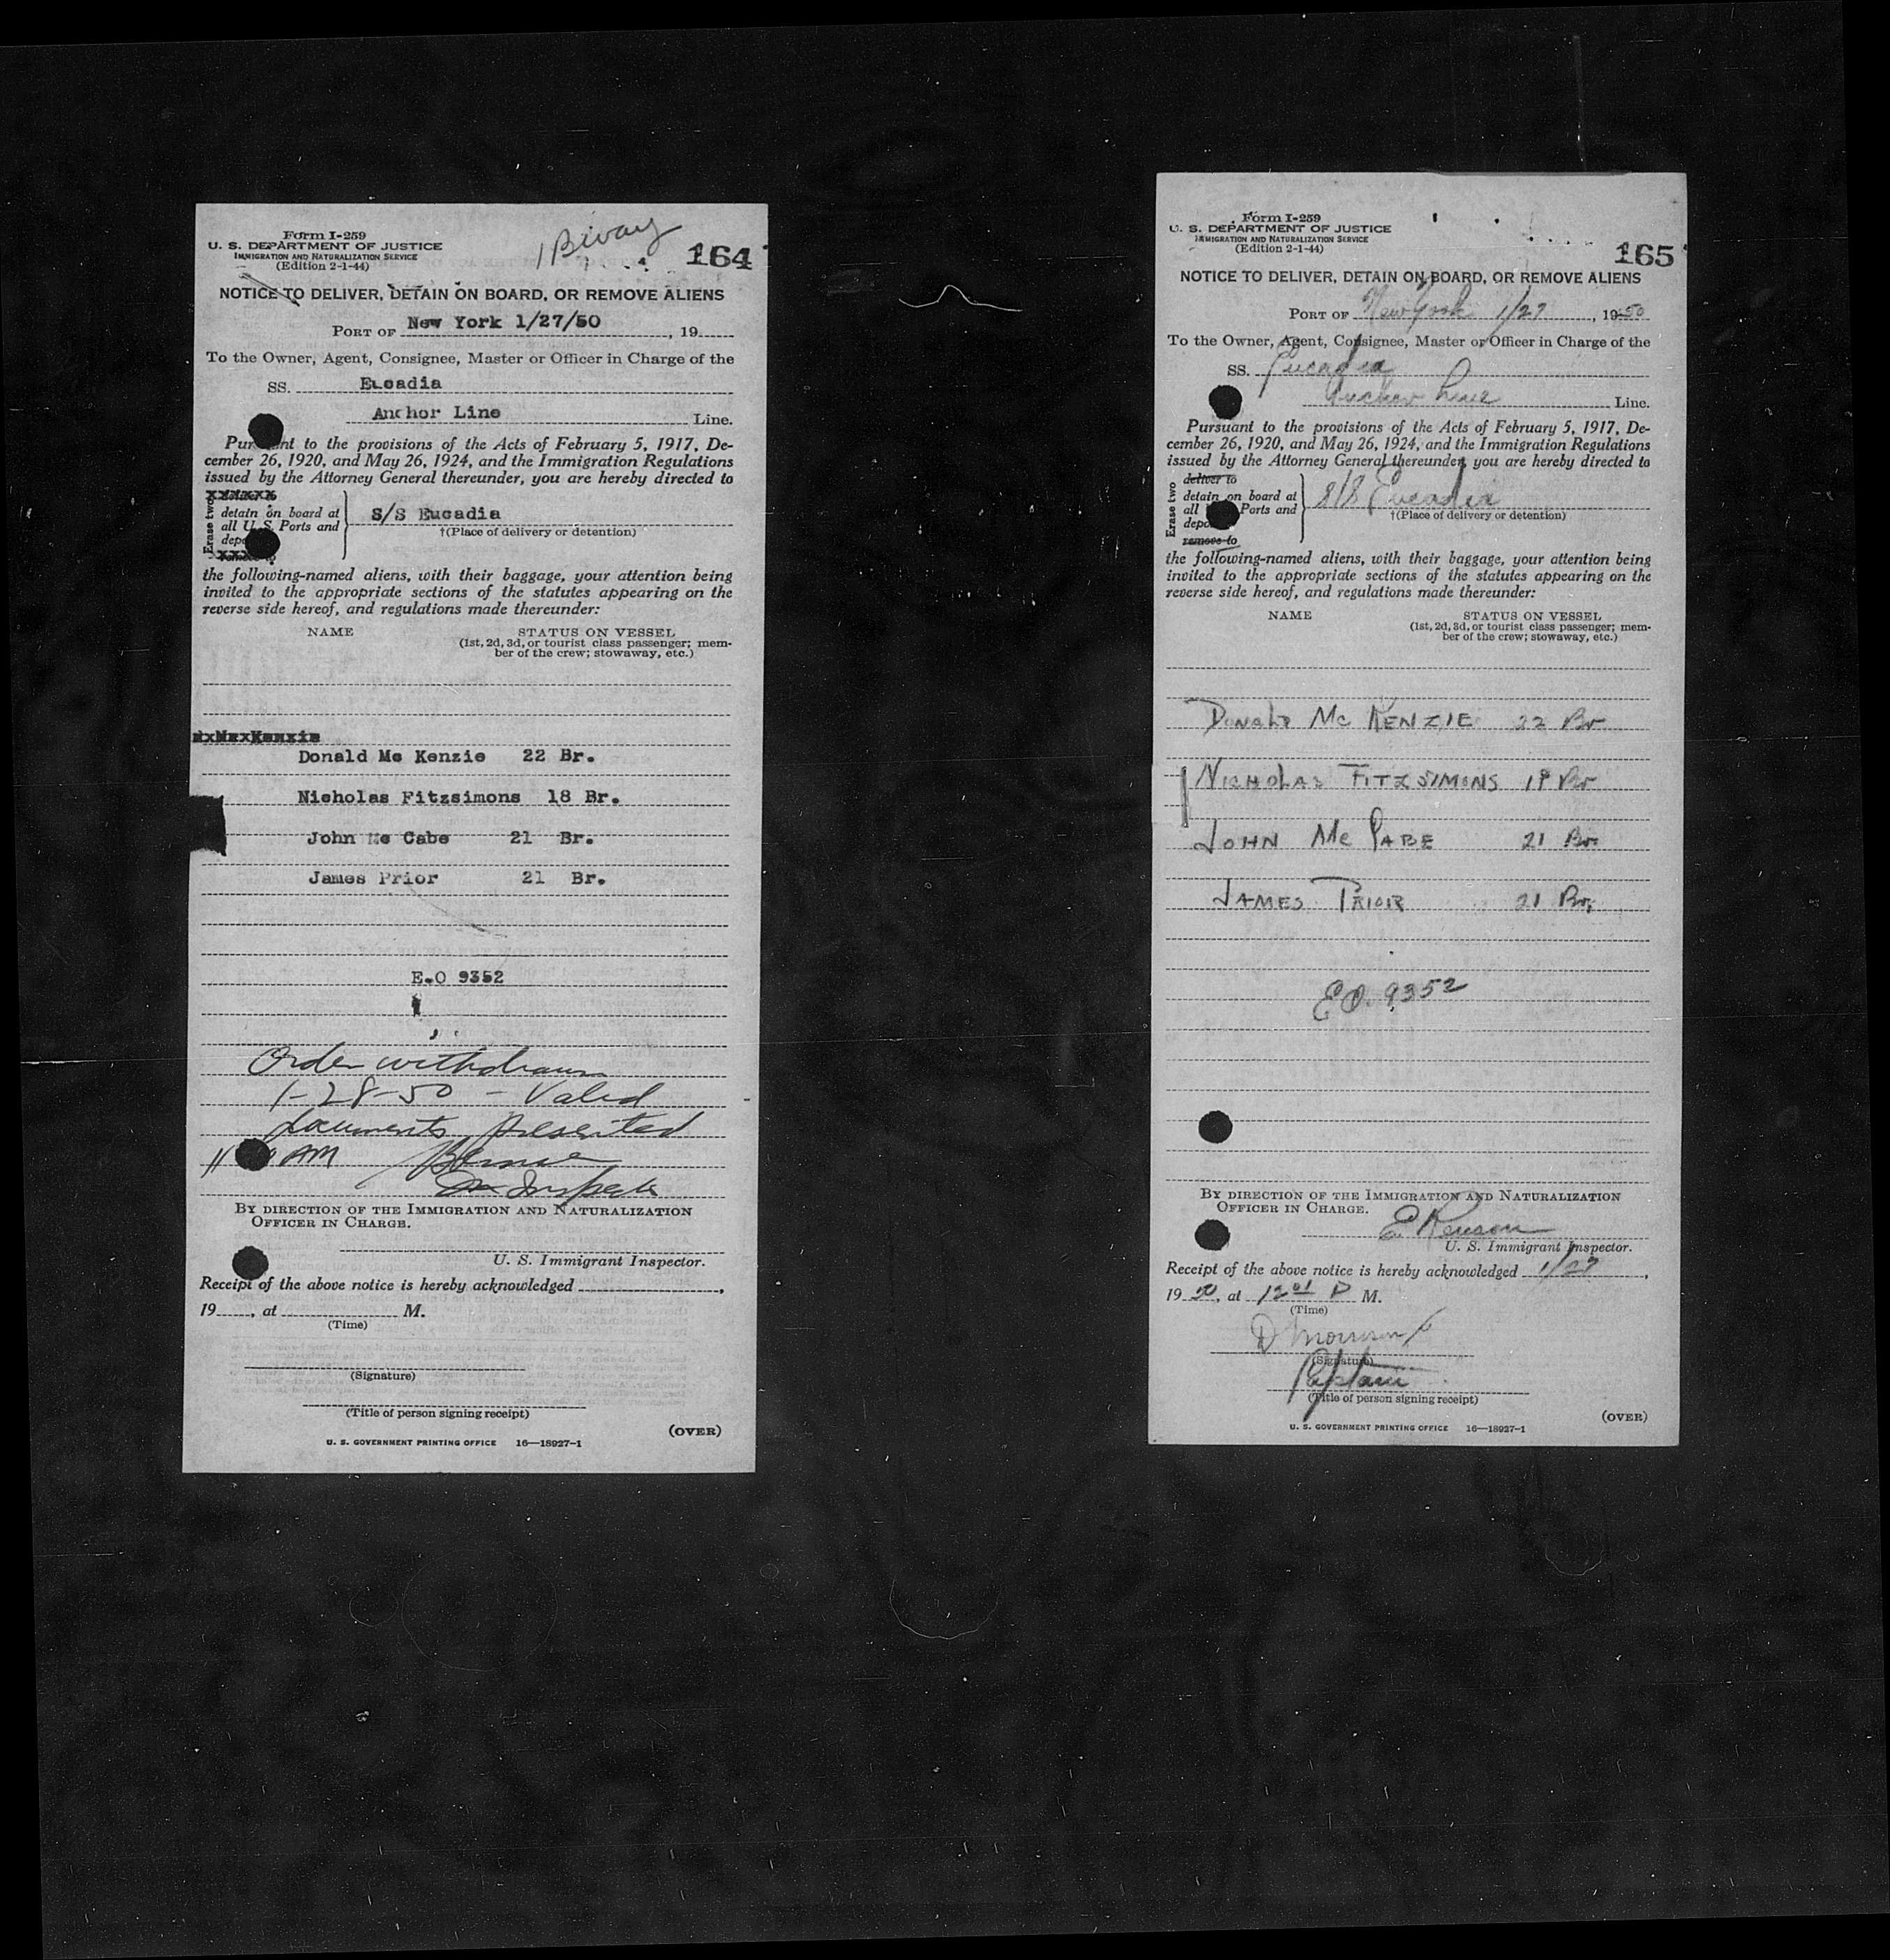 Form I-259
U. S. DEPARTMENT OF JUSTICE
IMMIGRATION AND NATURALIZATION SERVICE
(Edition 2-1-44)
164
NOTICE TO DELIVER, DETAIN ON BOARD, OR REMOVE ALIENS
PORT OF New York 1/27/50, 19
To the Owner, Agent, Consignee, Master or Officer in Charge of the
SS. Eucadia
Anchor Line Line.
to the provisions of the Acts of February 5, 1917, De-
cember 26, 1920, and May 26, 1924, and the Immigration Regulations
issued by the Attorney General thereunder, you are hereby directed to
Erase two
detain on board at
all U. S. Ports and
S/S Eucadia
†(Place of delivery or detention)
the following-named aliens, with their baggage, your attention being
invited to the appropriate sections of the statutes appearing on the
reverse side hereof, and regulations made thereunder:
NAME STATUS ON VESSEL
(1st, 2d, 3d, or tourist class passenger; mem-
ber of the crew; stowaway, etc.)
Donald Mc Kenzie 22 Br.
Nicholas Fitzsimons 18 Br.
John Mc Cabe 21 Br.
James Prior 21 Br.
E.O 9352
Order withdrawn
1-28-50 - Valid
documents presented
AM
Inspector
BY DIRECTION OF THE IMMIGRATION AND NATURALIZATION
OFFICER IN CHARGE.
U. S. Immigrant Inspector.
Receipt of the above notice is hereby acknowledged ,
19 , at M.
(Time)
(Signature)
(Title of person signing receipt)
(OVER)
U. S. GOVERNMENT PRINTING OFFICE 16—18927-1
Form I-259
U. S. DEPARTMENT OF JUSTICE
IMMIGRATION AND NATURALIZATION SERVICE
(Edition 2-1-44)
165
NOTICE TO DELIVER, DETAIN ON BOARD, OR REMOVE ALIENS
PORT OF New York 1/27, 1950
To the Owner, Agent, Consignee, Master or Officer in Charge of the
SS. Eucadia
Anchor Line Line.
Pursuant to the provisions of the Acts of February 5, 1917, De-
cember 26, 1920, and May 26, 1924, and the Immigration Regulations
issued by the Attorney General thereunder, you are hereby directed to
Erase two
deliver to
detain on board at
all Ports and
remove to
S/S Eucadia
†(Place of delivery or detention)
the following-named aliens, with their baggage, your attention being
invited to the appropriate sections of the statutes appearing on the
reverse side hereof, and regulations made thereunder:
NAME STATUS ON VESSEL
(1st, 2d, 3d, or tourist class passenger; mem-
ber of the crew; stowaway, etc.)
DONALD MC KENZIE 22 Br
NICHOLAS FITZSIMONS 18 Br
JOHN Mc CABE 21 Br
JAMES PRIOR 21 Br.
EO. 9352
BY DIRECTION OF THE IMMIGRATION AND NATURALIZATION
OFFICER IN CHARGE.
U. S. Immigrant Inspector.
Receipt of the above notice is hereby acknowledged 1/27,
19 50, at 12 01 P M.
(Time)
D Morrison
(Signature)
Captain
(Title of person signing receipt)
(OVER)
U. S. GOVERNMENT PRINTING OFFICE 16—18927-1